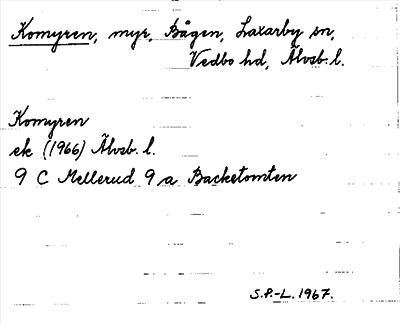 Komyren, myr, Bågen, Laxarby sn,
Vedbo hd, Älvsb. l.
Komyren
ek (1966) Älvsb. l.
9 C Mellerud 9 a Backetomten
S.P.-L. 1967.